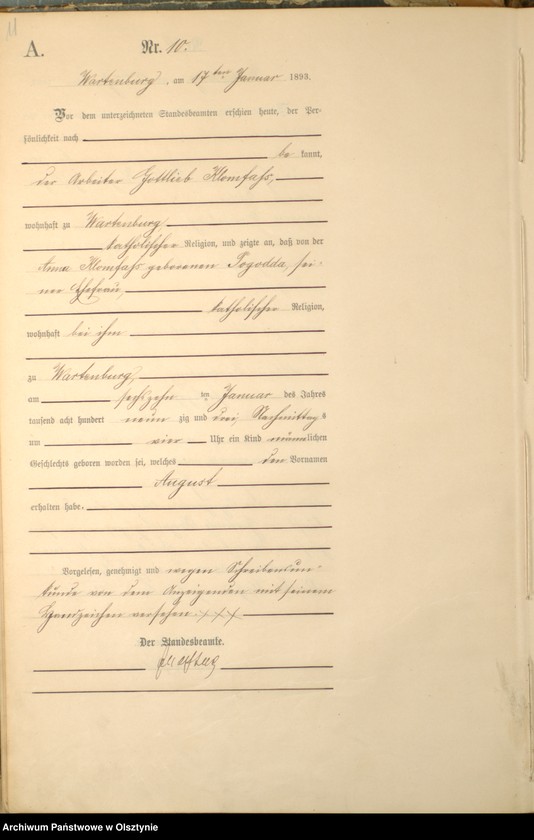 11
A.
Nr. 10.
Wartenburg, am 17ten Januar 1893.
Vor dem unterzeichneten Standesbeamten erschien heute, der Per-
sönlichkeit nach
be kannt,
der Arbeiter Gottlieb Klomfaß,
wohnhaft zu Wartenburg
katholischer Religion, und zeigte an, daß von der
Anna Klomfaß geborenen Pogodda, sei-
ner Ehefrau,
katholischer Religion,
wohnhaft bei ihm
zu Wartenburg,
am sechszehn ten Januar des Jahres
tausend acht hundert neun zig und drei, Nachmittags
um vier Uhr ein Kind männlichen
Geschlechts geboren worden sei, welches den Vornamen
August
erhalten habe.
Vorgelesen, genehmigt und wegen Schreibensun-
kunde von dem Anzeigenden mit seinem
Handzeichen versehen. xxx
Der Standesbeamte.
Archiwum Państwowe w Olsztynie